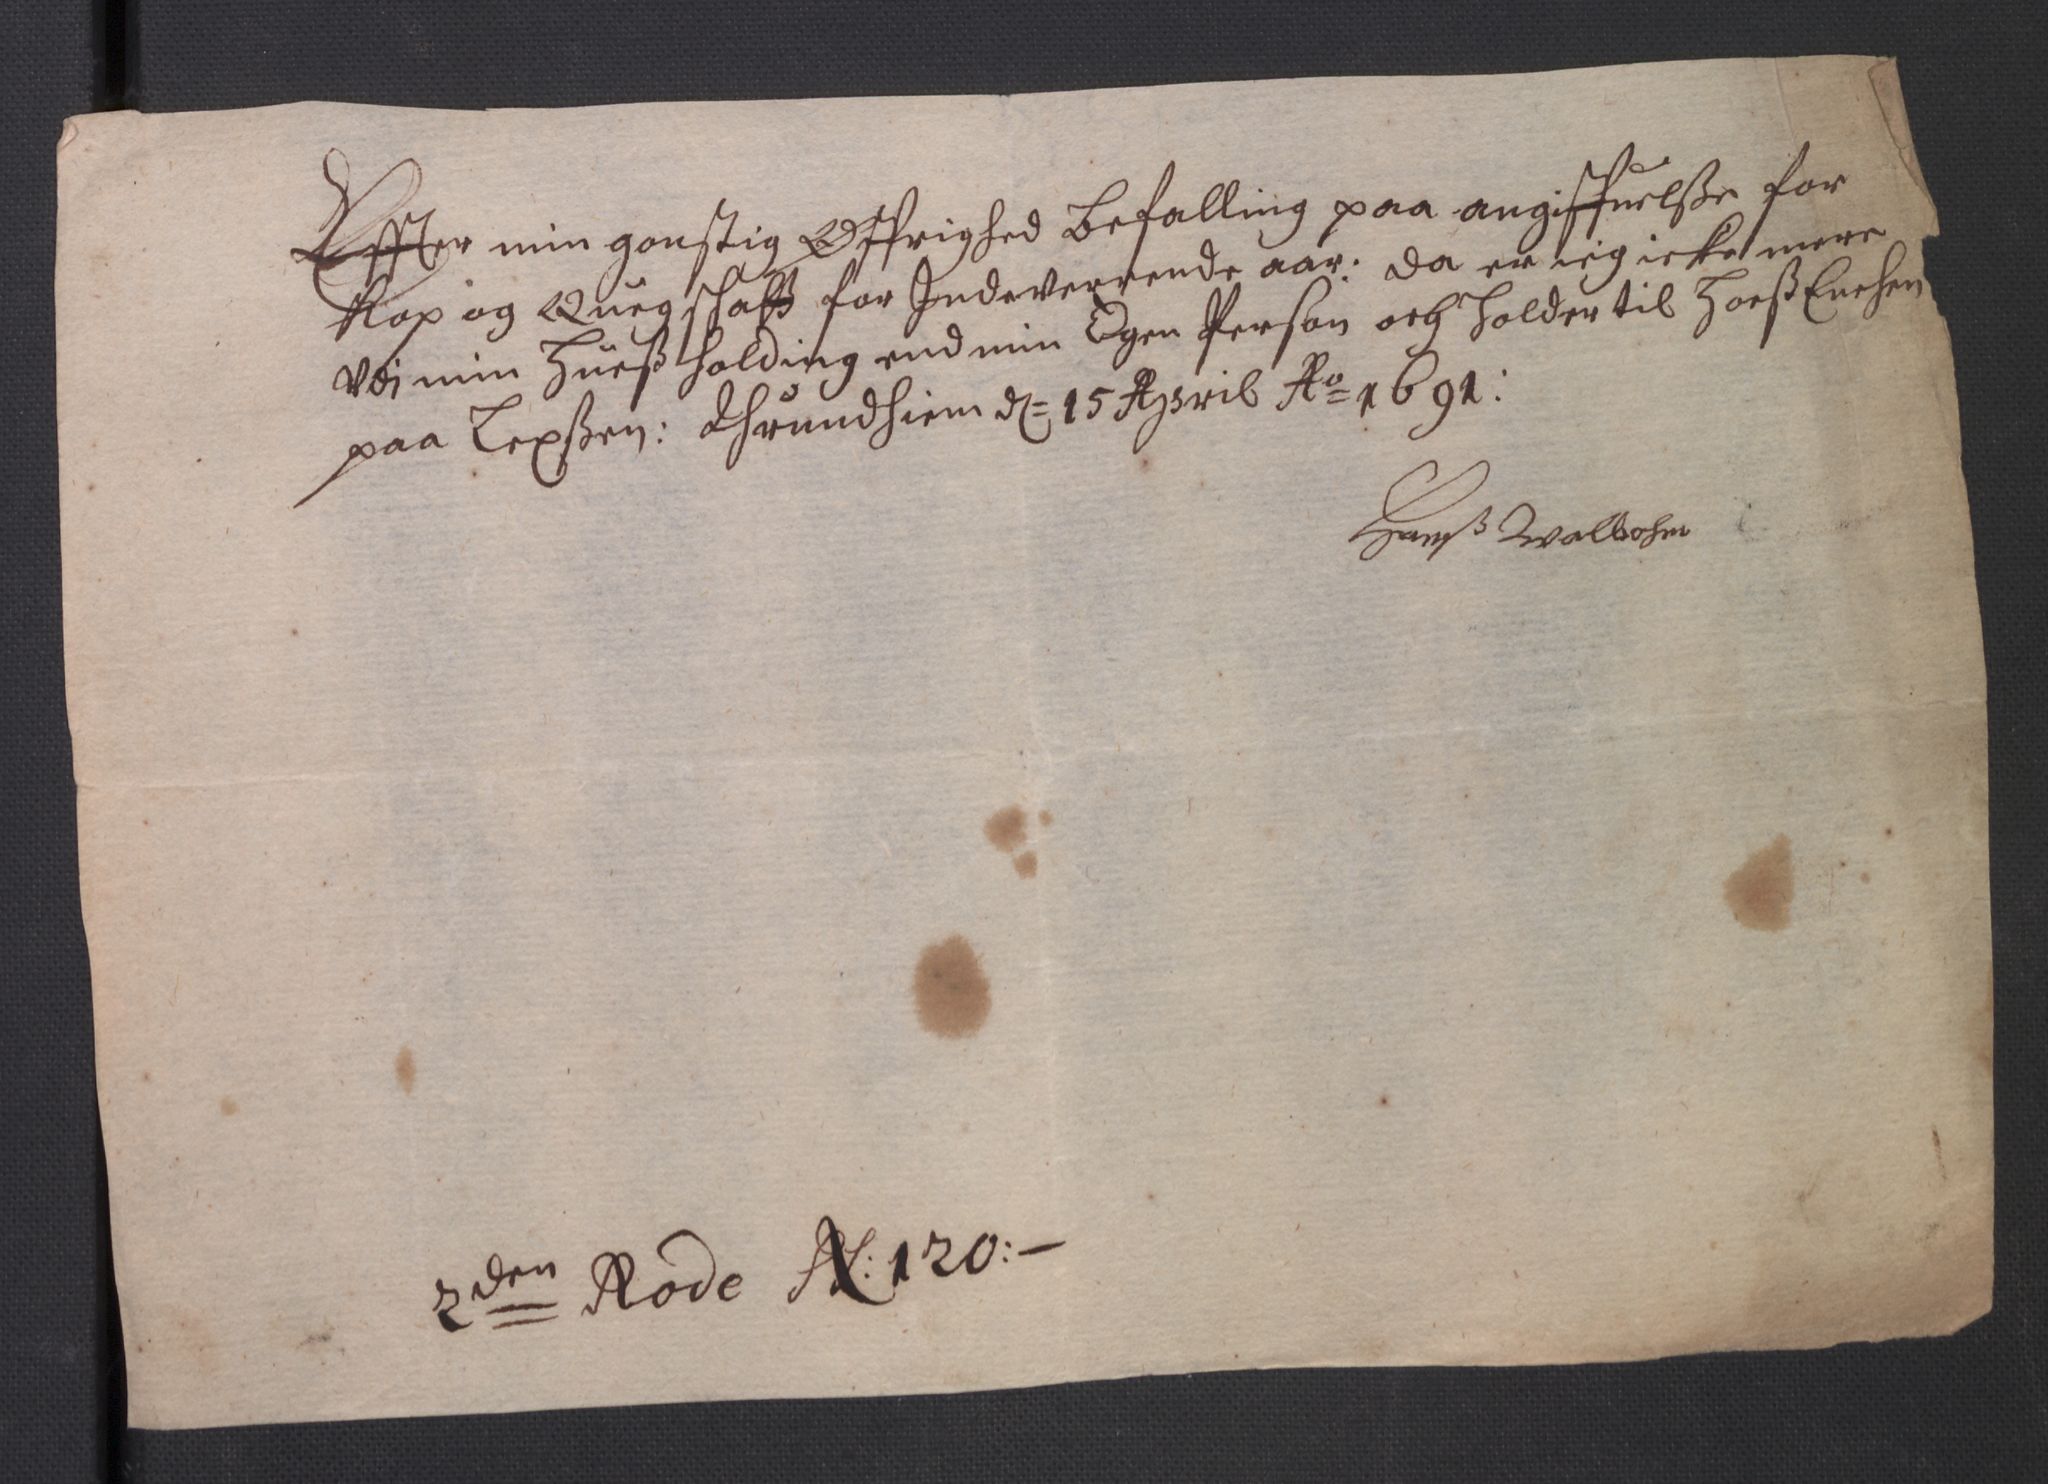 Effter min gonstig Øffrighed Befalling paa angiffuelsße for
Kop og Quegschatt for Indeverrende aar: da er ieg icke mere
Vdi min Hueß holding end min Egen Person och holder til Hoeß Enchen
paa Lexßen: Thrundhiem d= 15 April Ao= 1691:
Hanß Wallbohm
2den Rode No: 120:-